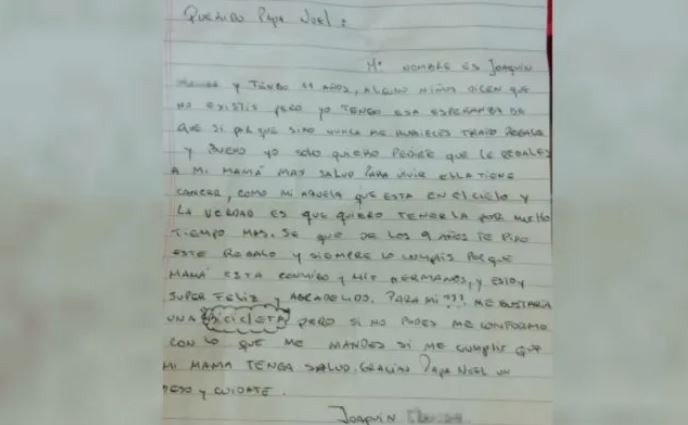 Querido Papa Noel:
Mi nombre es Joaquin
y tengo 11 años, algunos niños dicen que
no existis pero yo tengo esa esperanza de
que si porque sino nunca me hubieses traido regalos
y bueno yo solo quiero pedirte que le regales
a mi mamá mas salud para vivir ella tiene
cancer, como mi abuela que esta en el cielo y
la verdad es que quiero tenerla por mucho
tiempo mas. Se que de los 9 años te pido
este regalo y siempre lo cumplis porque
mamá esta conmigo y mis hermanos, y estoy
super feliz y agradecido. Para mi ??? me gustaria
una bicicleta pero si no podes me conformo
con lo que me mandes si me cumplis que
mi mama tenga salud. Gracias Papa Noel un
beso y cuidate.
Joaquin